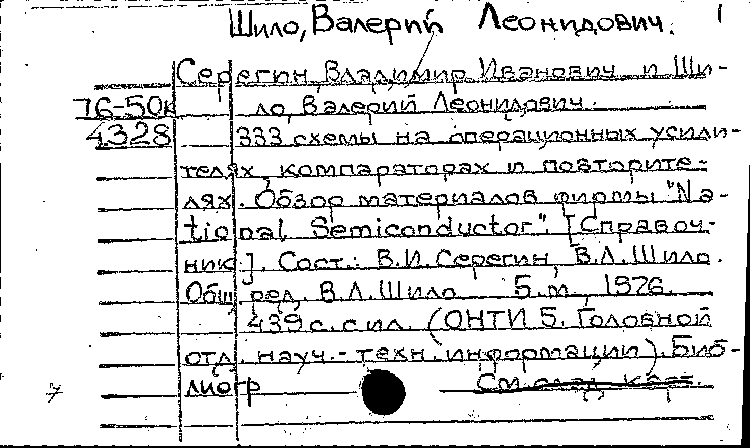 Шило, Валерий Леонидович. 1
Серегин, Владимир Иванович и Ши-
76-50к ло, Валерий Леонидович.
4328 333 схемы на операционных усили-
телях, компараторах и повторите-
лях. Обзор материалов фирмы "Na-
tional Semiconductor". [Справоч-
ник]. Сост.: В.И. Серегин, В.Л. Шило.
Общ. ред. В.Л. Шило. Б.м., 1976.
439 с. с ил. (ОНТИ 5. Головной
отд. науч.-техн. информации). Биб-
7 лиогр См. след. карт.